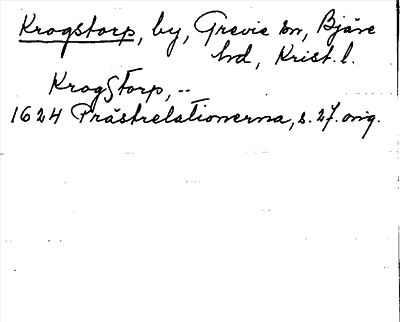 Krogstorp, by, Grevie sn, Bjäre
hd, Krist. l.
KrogStorp, --
1624 Prästrelationerna, s. 27. orig.